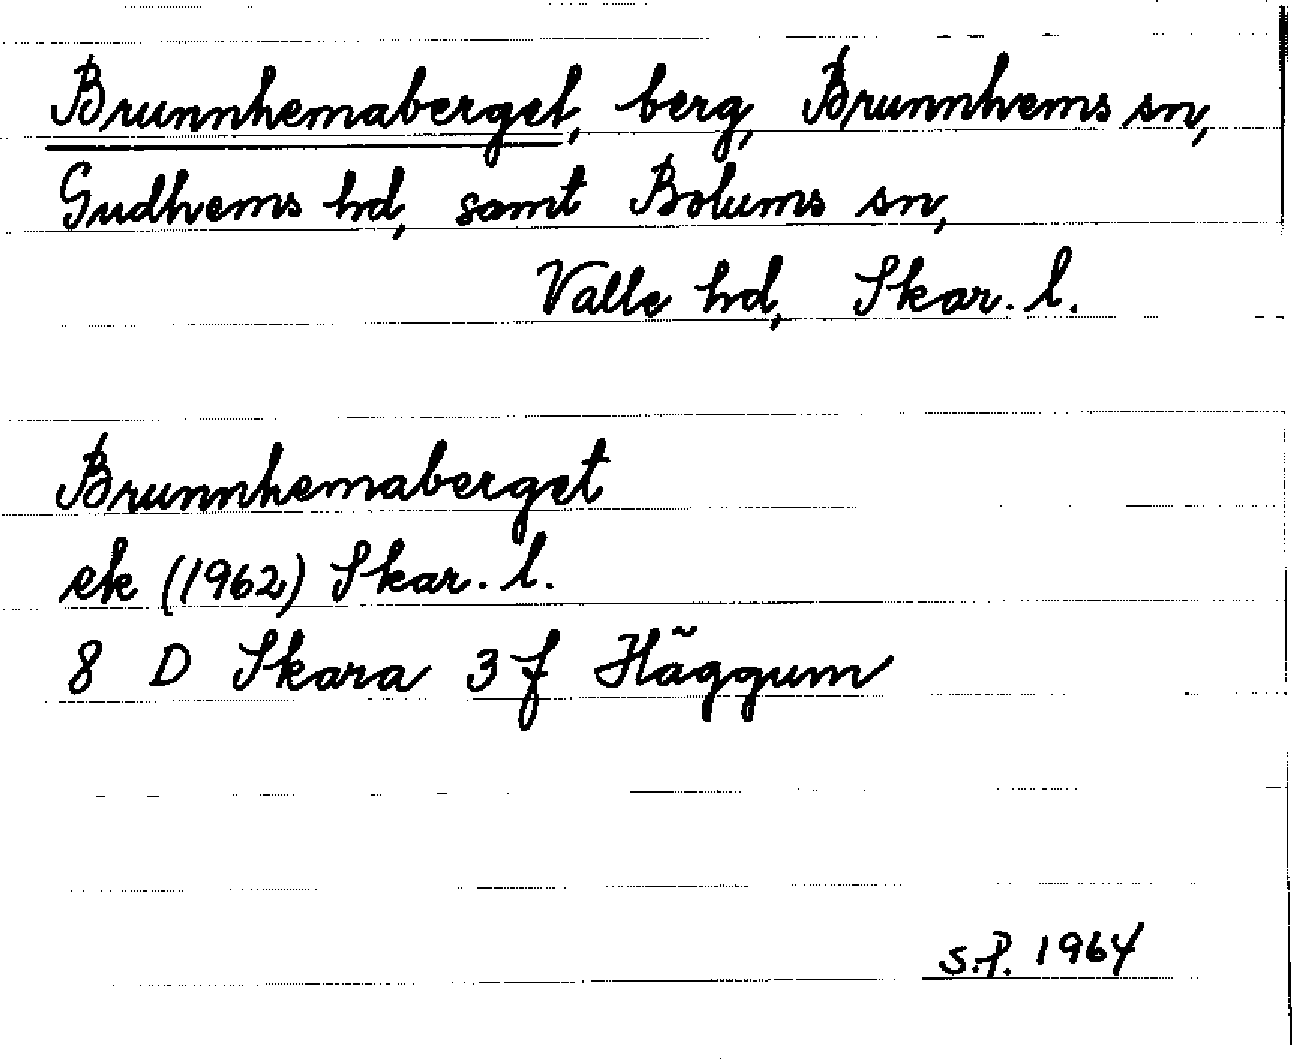 Brunnhemaberget, berg, Brunnhems sn,
Gudhems hd, samt Bolums sn,
Valle hd, Skar. l.
Brunnhemaberget
ek (1962) Skar. l.
8 D Skara 3 f Häggum
S.P. 1964